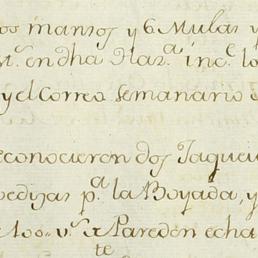 os mansos y 6 Mulas y
en dha Haz.ª inc.ˢ lo
y el Correo Semanario
econocieron dos Jaguei
edizas p.ª la Boyada, y
100 v.ˢ Paredon echa
te